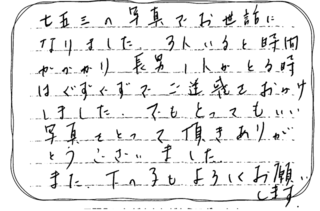 七五三の写真でお世話に
なりました。3人いると時間
がかかり長男1人がとる時
はぐずぐずでご迷惑をおかけ
しました。でもとってもいい
写真をとって頂きありが
とうございました
また、下の子もよろしくお願い
します